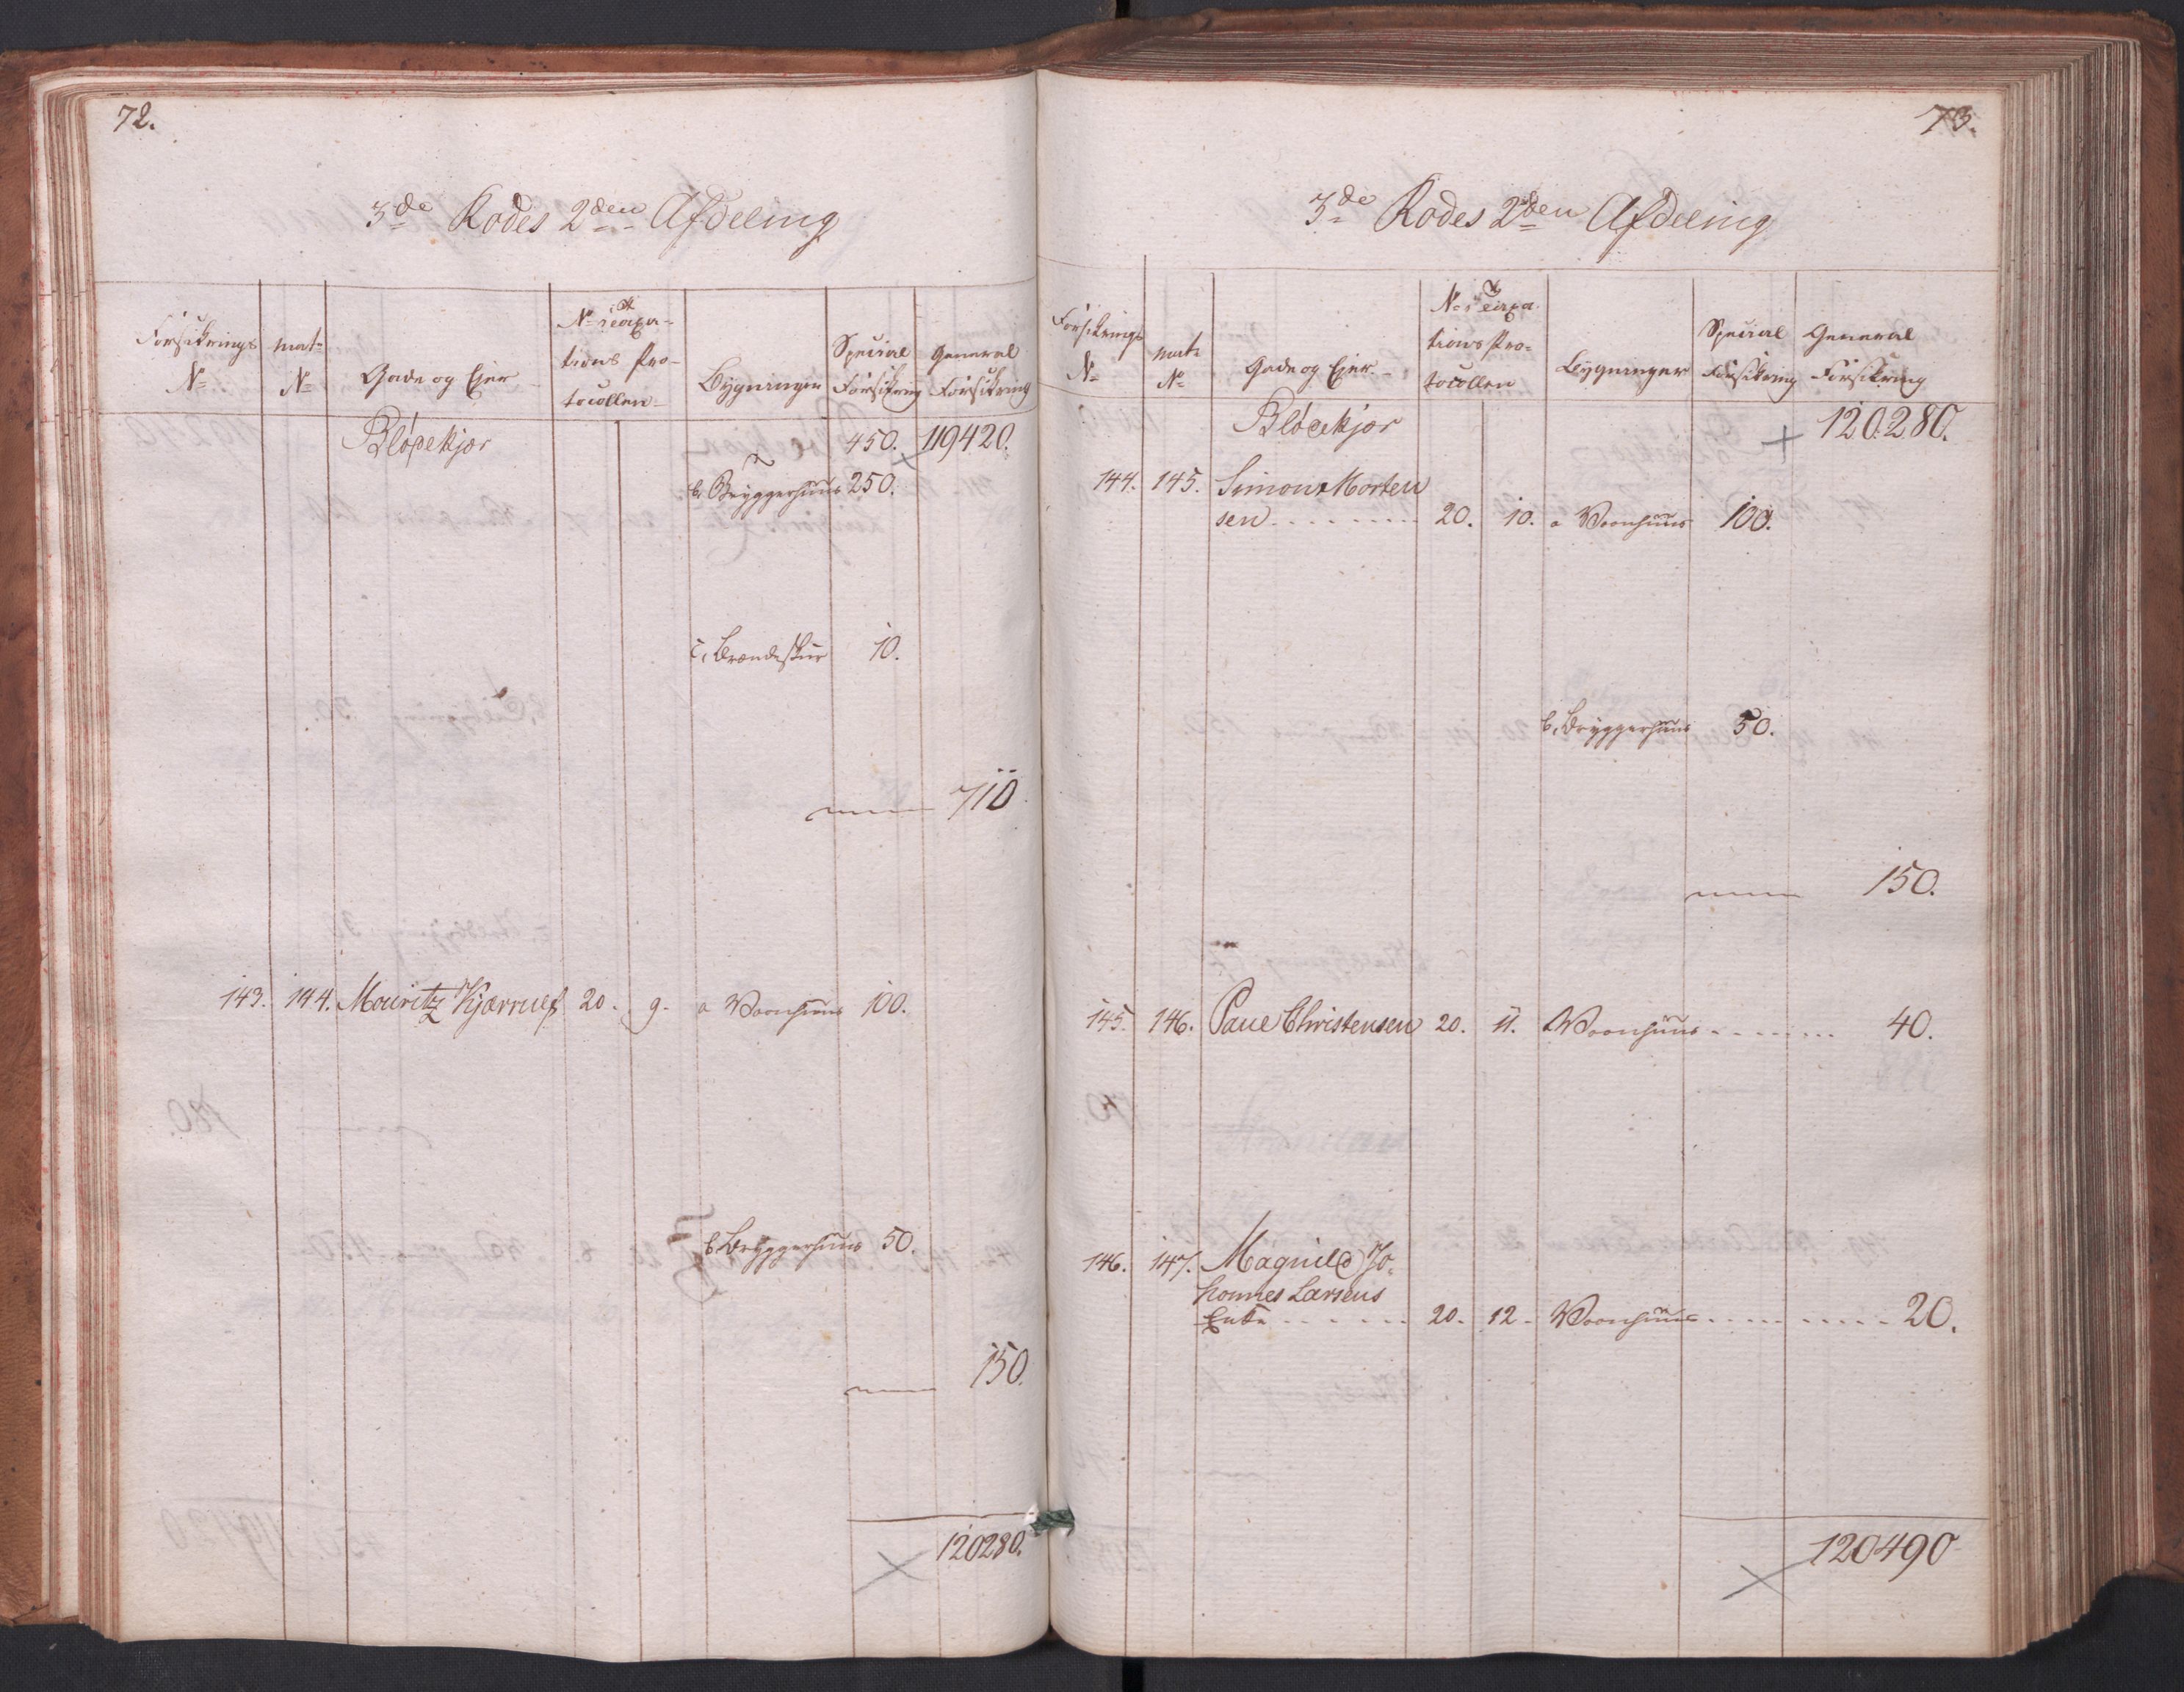 72.
3de Rodes 2den Afdeeling
Forsikrings No
mat: No
Gade og Ejer
No i Taxations Protocollen
Bygninger
Special Forsikring
General Forsikring
Bløpekjør 450. 119420.
b, Bryggerhuus 250.
c, Brændeskur 10.
710
143. 144. Mouritz Kjærrulf 20. 9. a Vaanhuus 100.
b Bryggerhuus 50.
150.
120280.
73.
3de Rodes 2den Afdeeling
Forsikrings No
mat: No
Gade og Ejer
No i Taxations Protocollen
Bygninger
Special Forsikring
General Forsikring
Bløpekjør 120280.
144. 145. Simon Morten
sen 20. 10. a Vaanhuus 100.
b, Bryggerhuus 50.
150.
145. 146. Paul Christensen 20. 11. Vaanhuus 40.
146. 147. Magnild Jo-
hannes Larsens
Enke 20. 12. Vaanhuus 20.
120490